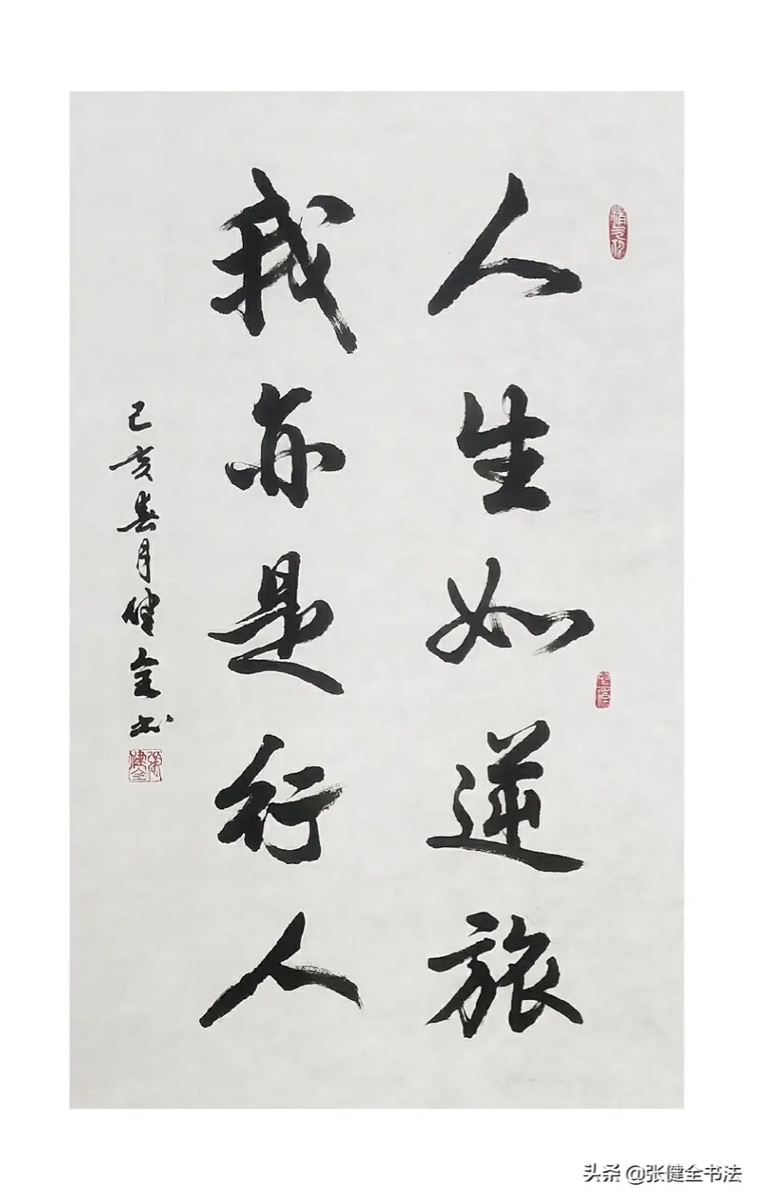 人生如逆旅
我亦是行人
己亥春月健全书
张健全
头条 @张健全书法